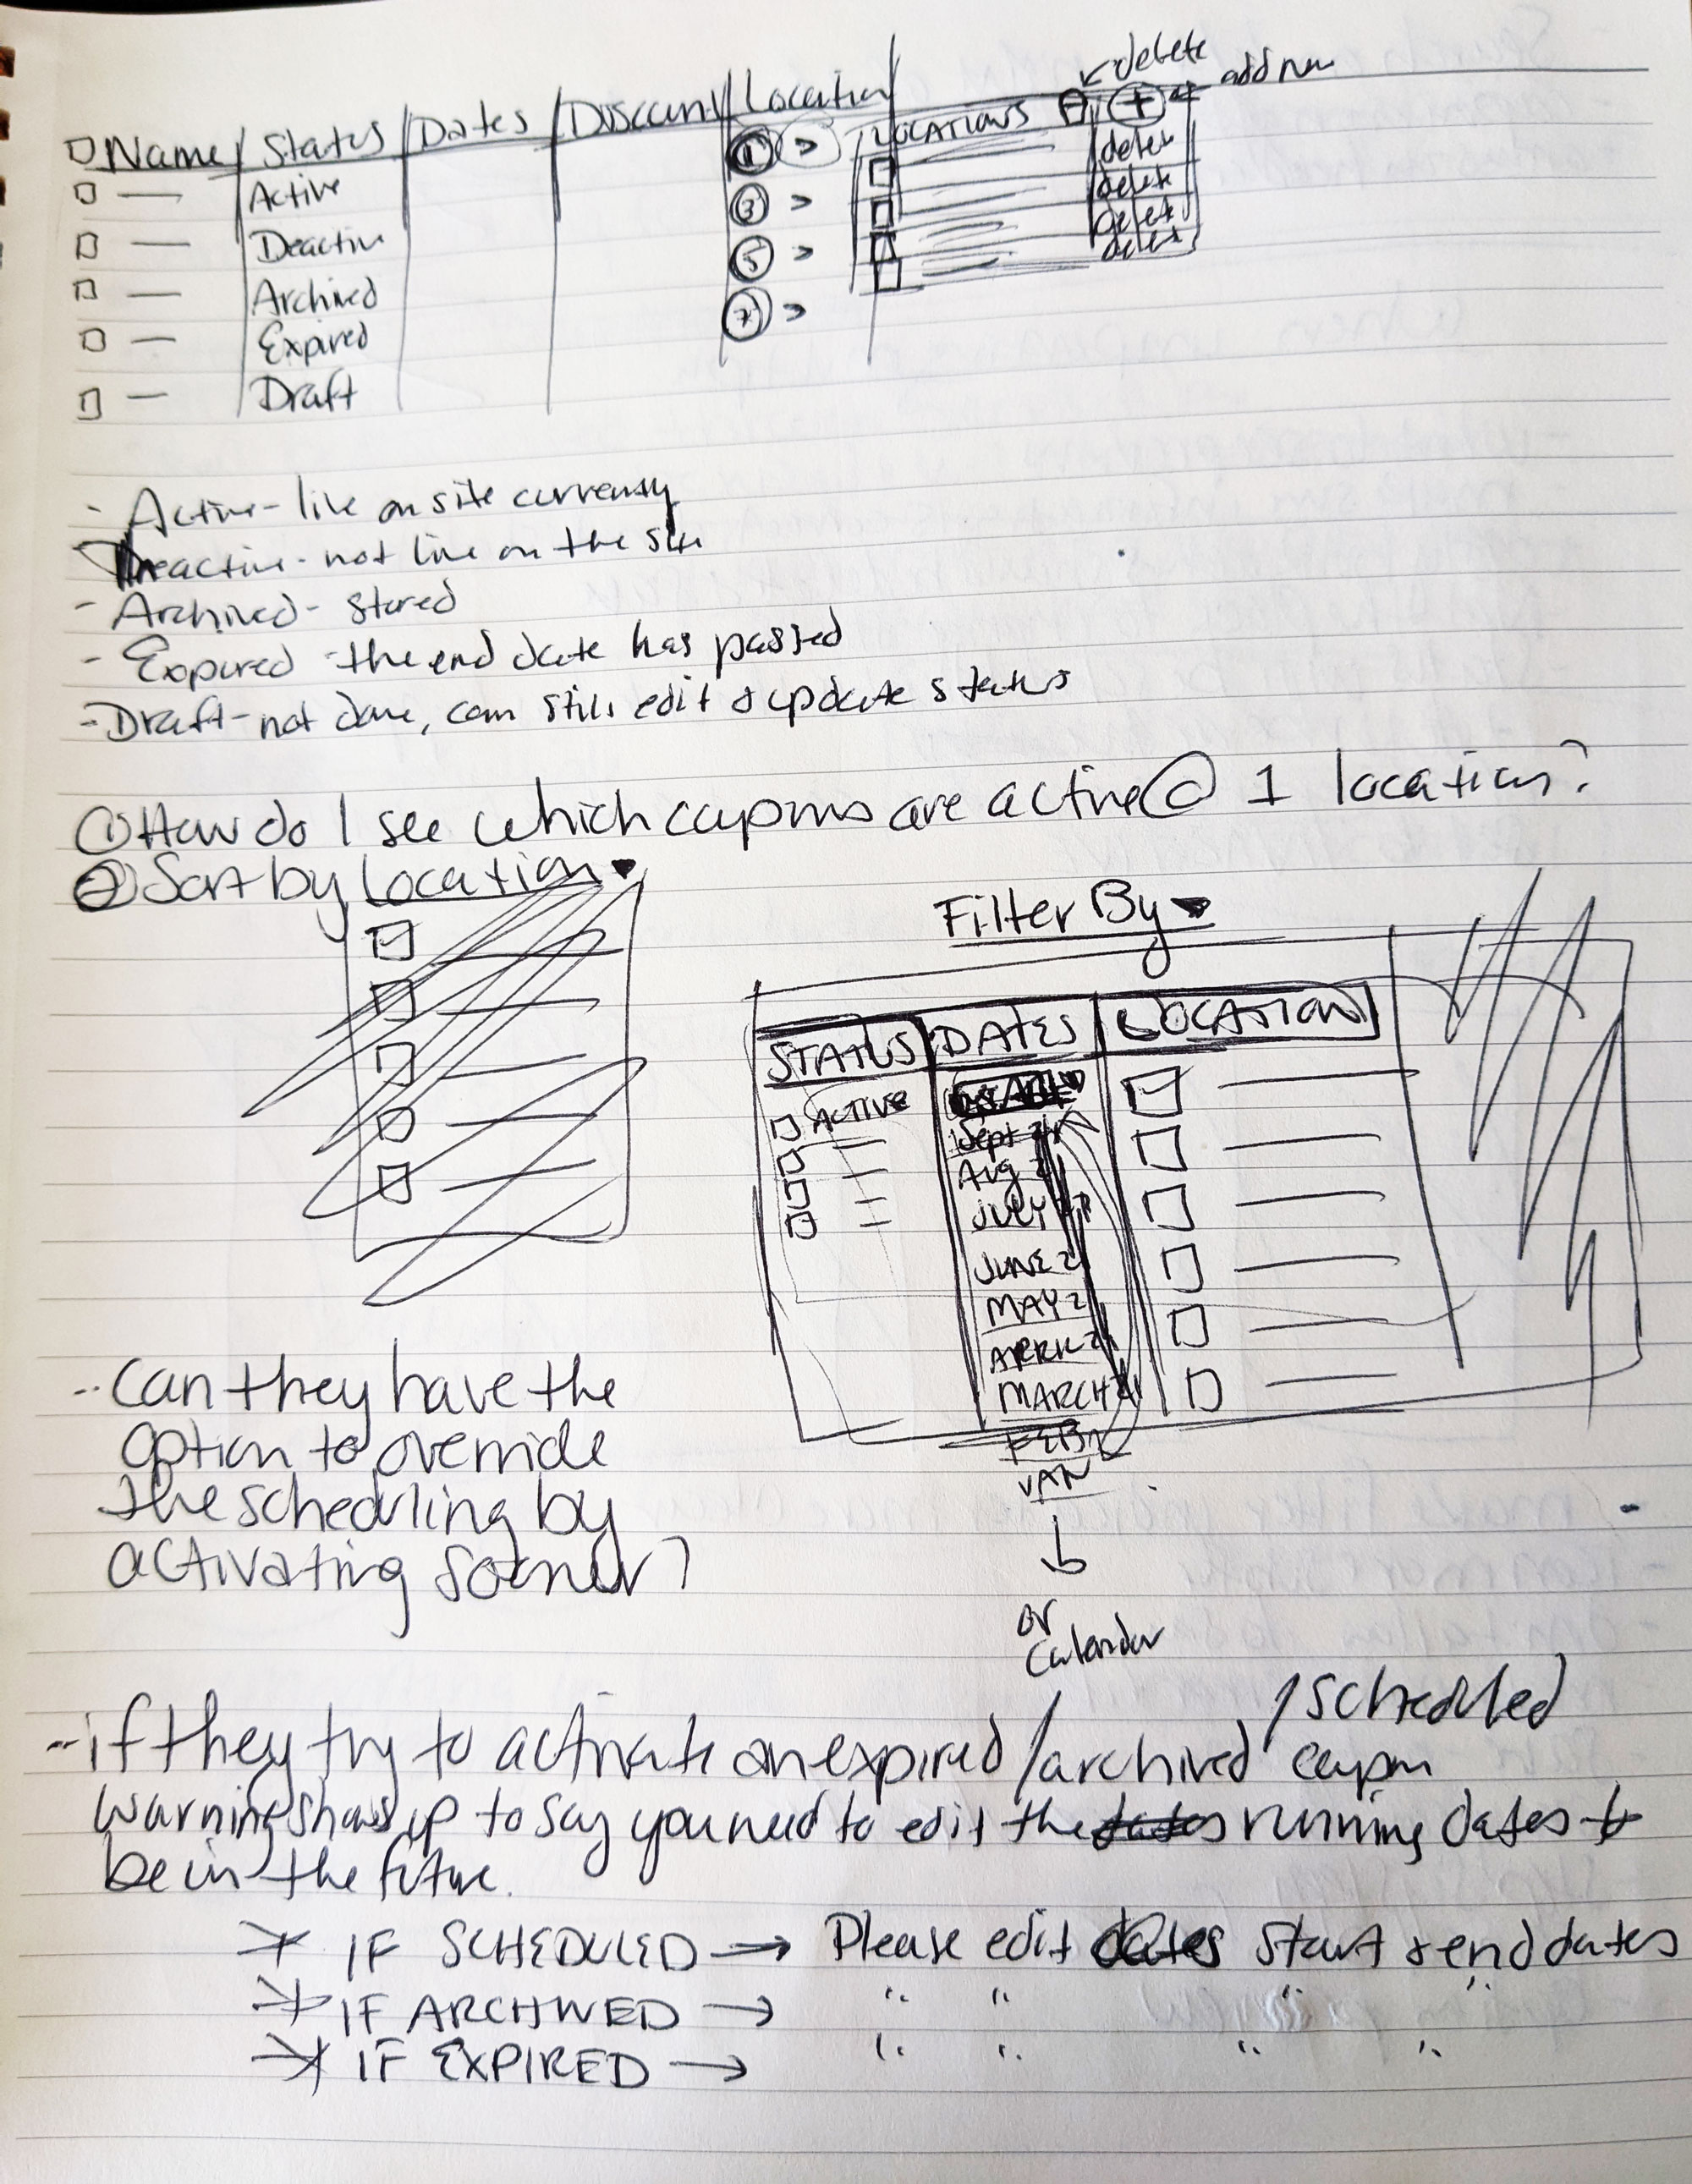 ← delete
add new
Name Status Dates Discount Location
LOCATIONS +
1 >
3 >
5 >
7 >
delete
delete
delete
delete
Active
Deactive
Archived
Expired
Draft
- Active - live on site currently
Deactive - not live on the site
- Archived - stored
- Expired - the end date has passed
- Draft - not done, can still edit & update status
① How do I see which coupons are active @ 1 location?
② Sort by Location
Filter By
STATUS DATES LOCATION
ACTIVE
Sept 21
Aug 2
JULY
JUNE 2
MAY 2
APRIL 21
MARCH 21
FEB
JAN
↓
or
Calendar
- Can they have the
option to override
the scheduling by
activating sooner?
/ scheduled
- if they try to activate an expired / archived coupon
warning shows up to say you need to edit the dates running dates to
be in the future.
* IF SCHEDULED → Please edit dates start & end dates
* IF ARCHIVED → " " " "
* IF EXPIRED → " " " "